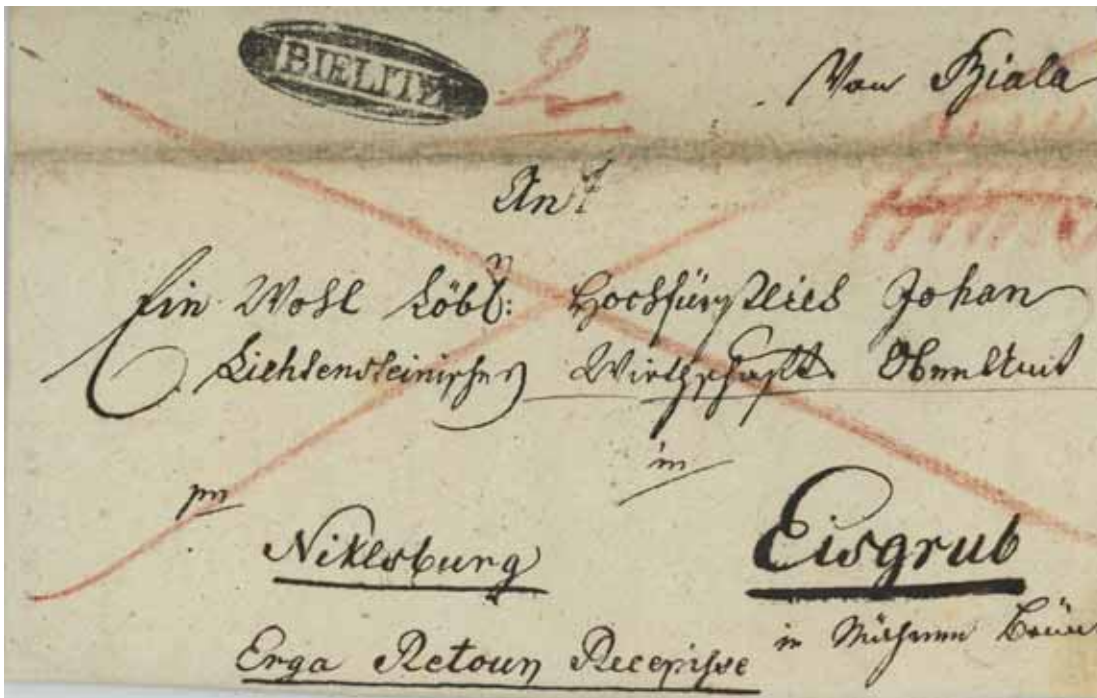 BIELITZ 2 Von Biala
An
Ein Wohl Löbl: Hochfürstlich Johan
Liechtensteinischen Wirthschafts Ober Amt
in
per
Nikelsburg Eisgrub
Erga Retour Recepisse in Mähren